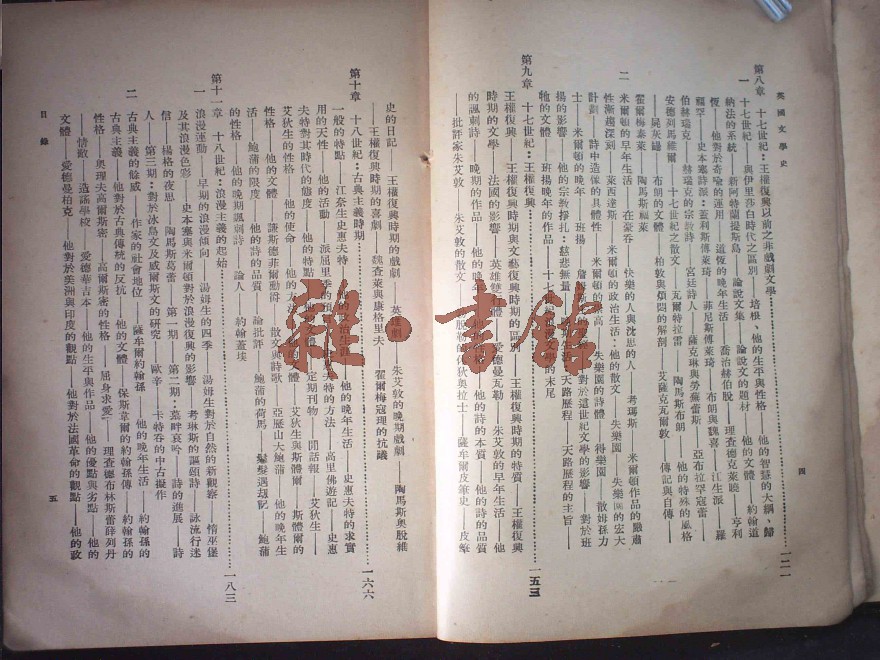 英國文學史
四
第八章 十七世紀：王權復興以前之非戲劇文學…………一二一
一 十七世紀——與伊里莎白時代之區別——培根、他的生平與性格——他的智慧的大綱、歸
納法的系統——新阿特蘭提斯島——論說文集——論說文的題材——他的文體——約翰道
恆——他對於奇喩的運用——道恆的影響——喬治赫伯脫——理查德克萊曉——亨利
福罕——史本塞詩派：蓋利斯傅萊琦——菲尼斯傅萊琦——布朗與魏喜——江生派——羅
伯赫瑞克——赫瑞克的宗教詩——宮廷詩人——薩克林與勞蘇蕾斯——亞布拉罕寇蕾——
安德列馬維爾——十七世紀之散文——瓦爾特拉雷——陶馬斯布朗——他的特殊的風格
——屍灰罎——布朗的文體——柏敦與煩悶的解剖——艾薩克瓦爾敦——傳記與自傳——
霍爾梅泰萊——陶馬斯福萊
二 米爾頓的早年生活——在豪吞——快樂的人與沈思的人——考瑪斯——米爾頓作品的嚴肅
性漸趨深刻——萊西達斯——米爾頓的政治生活：他的散文——失樂園——失樂園的宏大
計劃——詩中造像的具體性——米爾頓的崇高——失樂園的詩體——得樂園——散姆孫力
士——米爾頓的晚年——班揚
揚的影響——他的宗教掙扎：慈悲無量——天路歷程——天路歷程的主旨——
牠的文體——班揚晚年的作品——十七世紀文學的末尾
第九章 十七世紀：王權復興…………一五三
王權復興——王權復興時期與文藝復興時期的區別——王權復興時期的特質——王權復興
時期的文學——法國的影響——英雄雙行體——愛德曼瓦勒——朱艾敦的早年生活——他
的諷刺詩——晚期的作品——他的晚年——他的詩的本質——他的詩的品質
——批評家朱艾敦——朱艾敦的散文——薩牟爾皮維史——皮維
史的日記——王權復興時期的戲劇——英雄劇——朱艾敦的晚期戲劇——陶馬斯奧脫維
——王權復興時期的喜劇——魏查萊與康格里夫——霍爾梅寇理的抗議
第十章 十八世紀：古典主義時期…………一六六
一般的特點——江奈生史惠夫特——他的政治生涯——他的晚年生活——史惠夫特的求實
用的天性——他的活動——派屈里季的預——史惠夫特的方法——高里佛遊記——史惠
夫特對其時代的態度——他的特點——他的文體——定期刊物——閒話報——艾狄生——
艾狄生的性格——他的使命——他的方法——他的文體——艾狄生與斯體爾——斯體爾的
性格——他的文體——謙斯德菲爾勳爵——散文與詩歌——亞歷山大鮑蒲——他的晚年生
活——鮑蒲的限度——他的詩的品質——論批評——鮑蒲的荷馬——鬈髮遇刧記——鮑蒲
的性格——他的晚期諷刺詩——論人——約翰蓋埃
第十一章 十八世紀：浪漫主義的起始…………一八三
一 浪漫運動——早期的浪漫傾向——湯姆生的四季——湯姆生對於自然的新觀察——惰巫堡
及其浪漫色彩——史本塞與米爾頓對於浪漫復興的影響——考琳斯的謳頌詩——詠流行迷
信——楊格的夜思——陶馬斯葛蕾——第一期——第二期：墓畔哀吟——詩的進展——詩
人——第三期：對於冰島文及威爾斯文的研究——歐辛——卡特吞的中古擬作
二 古典主義的餘威——作家的社會地位——薩牟爾約翰孫——他的晚年生活——約翰孫的
古典主義——他對於古典傳統的反抗——他的文體——保斯韋爾的約翰孫傳——約翰孫的
性格——奧理夫高爾斯密——高爾斯密的性格——屈身求愛——理查德布林斯蕾薛列丹
——情敵——造謠學校——愛德華吉本——他的生平與作品——他的優點與劣點——他的
文體——愛德曼柏克——他對於美洲與印度的觀點——他對於法國革命的觀點——他的政
目錄
五
雜·書館